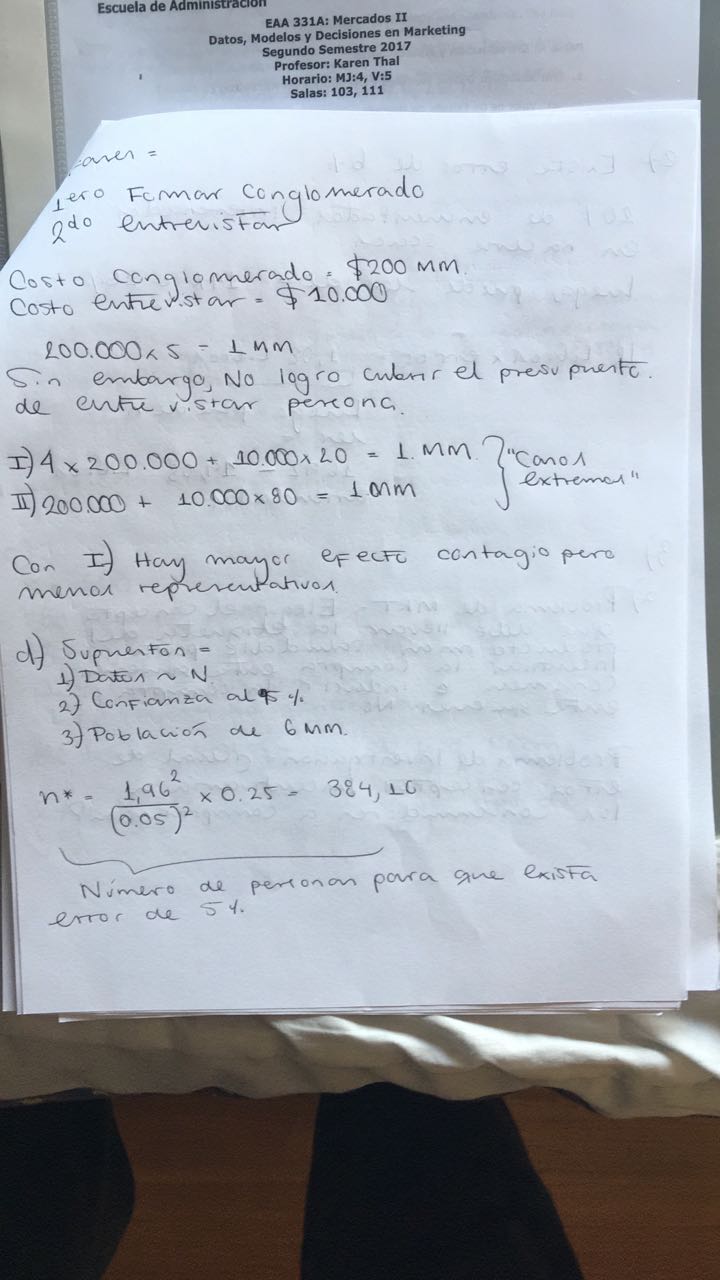 Escuela de Administración
EAA 331A: Mercados II
Datos, Modelos y Decisiones en Marketing
Segundo Semestre 2017
Profesor: Karen Thal
Horario: MJ:4, V:5
Salas: 103, 111
=
1ero Formar Conglomerado
2do entrevistar
Costo conglomerado = $200 MM.
Costo entrevistar = $10.000
200.000 x 5 = 1 MM
Sin embargo, No logro cubrir el presupuesto.
de entrevistar persona.
I) 4 x 200.000 + 10.000 x 20 = 1. MM.
II) 200.000 + 10.000 x 80 = 1 MM
"Casos
extremos"
Con I) Hay mayor efecto contagio pero
menos representativos.
d) Supuestos =
1) Datos ~ N.
2) Confianza al 95 %.
3) Población de 6 MM.
n* = 1,96² / (0.05)² x 0.25 = 384,16
Número de personas para que exista
error de 5%